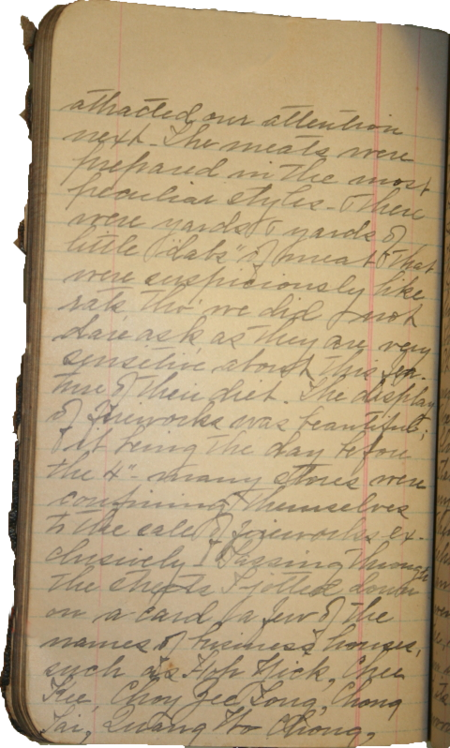 attracted our attention
next - The meats were
prepared in the most
peculiar styles - There
were yards & yards of
little "dabs" of meat that
were suspiciously like
rats tho' we did not
dare ask as they are very
sensitive about this fea-
ture of their diet. The display
of fireworks was beautiful;
& it being the day before
the 4" - many stores were
confining themselves
to the sale of fireworks ex-
clusively - Passing through
the streets I jotted down
on a card a few of the
names of business houses,
such as Hop Kick, Chee
Kee, Choy Gee Tong, Chong
Tai, Quang Wo Chong,